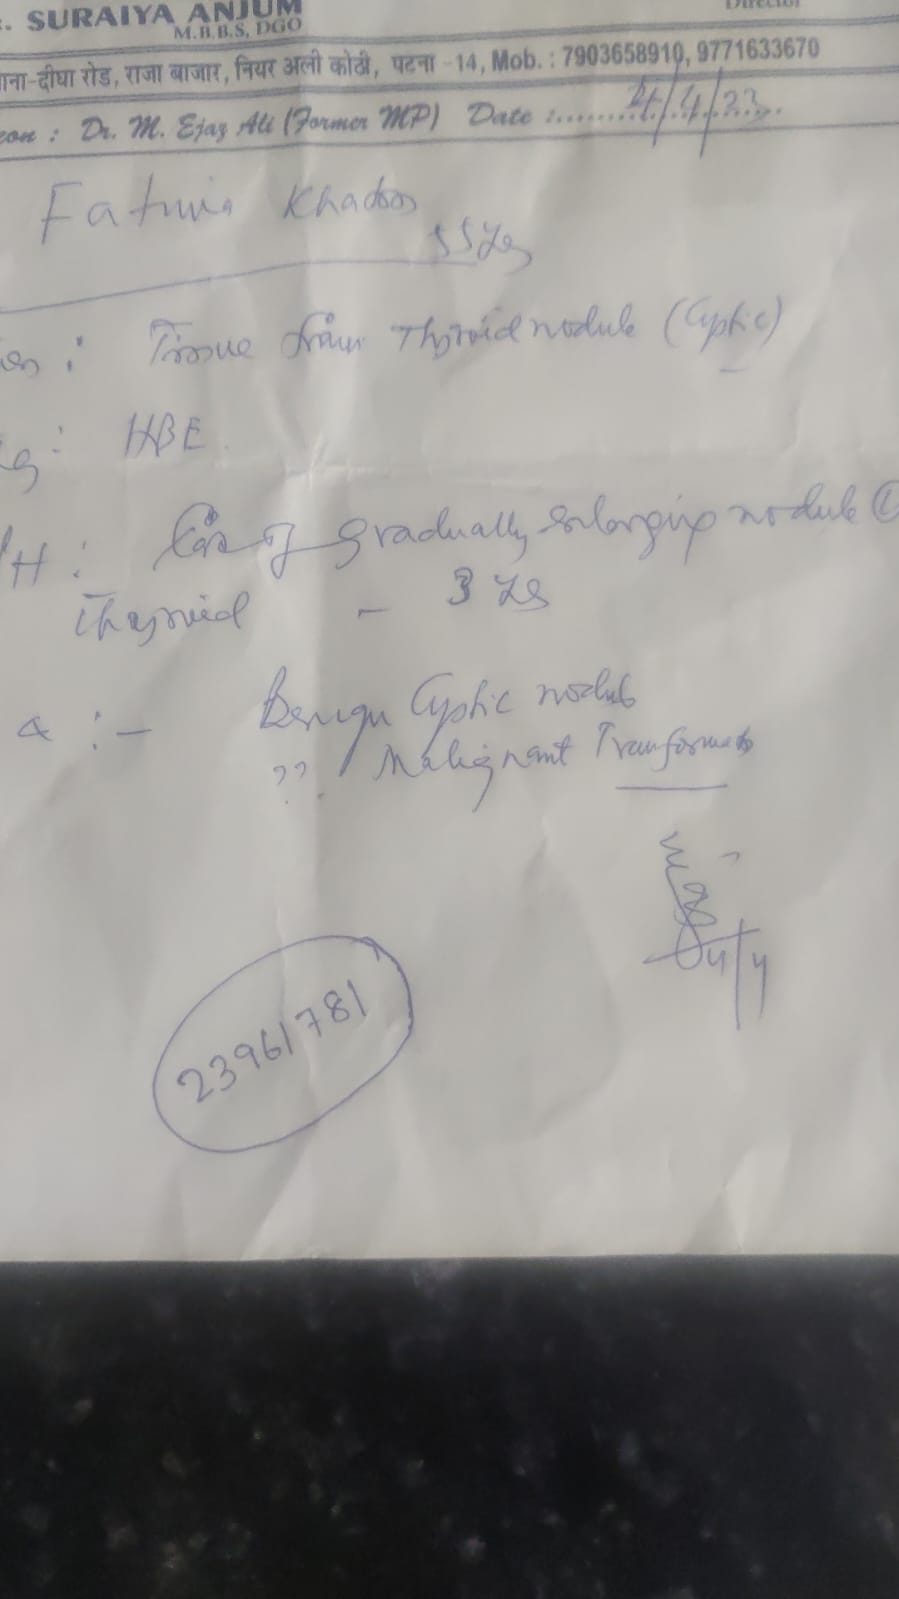 . SURAIYA ANJUM
M.B.B.S, DGO
Director
ाना-दीघा रोड, राजा बाजार, नियर अली कोठी, पटना -14, Mob. : 7903658910, 9771633670
eon : Dr. M. Ejaz Ali (Former MP) Date :.......4/4/23
Fatima Khatoon
55 Yrs
: Tissue from Thyroid nodule (Cystic)
: HBE
/H : Case of gradually enlarging nodule
Thyroid - 3 Yrs
:- Benign Cystic nodule
?? Malignant Transformat
4/4
23961781